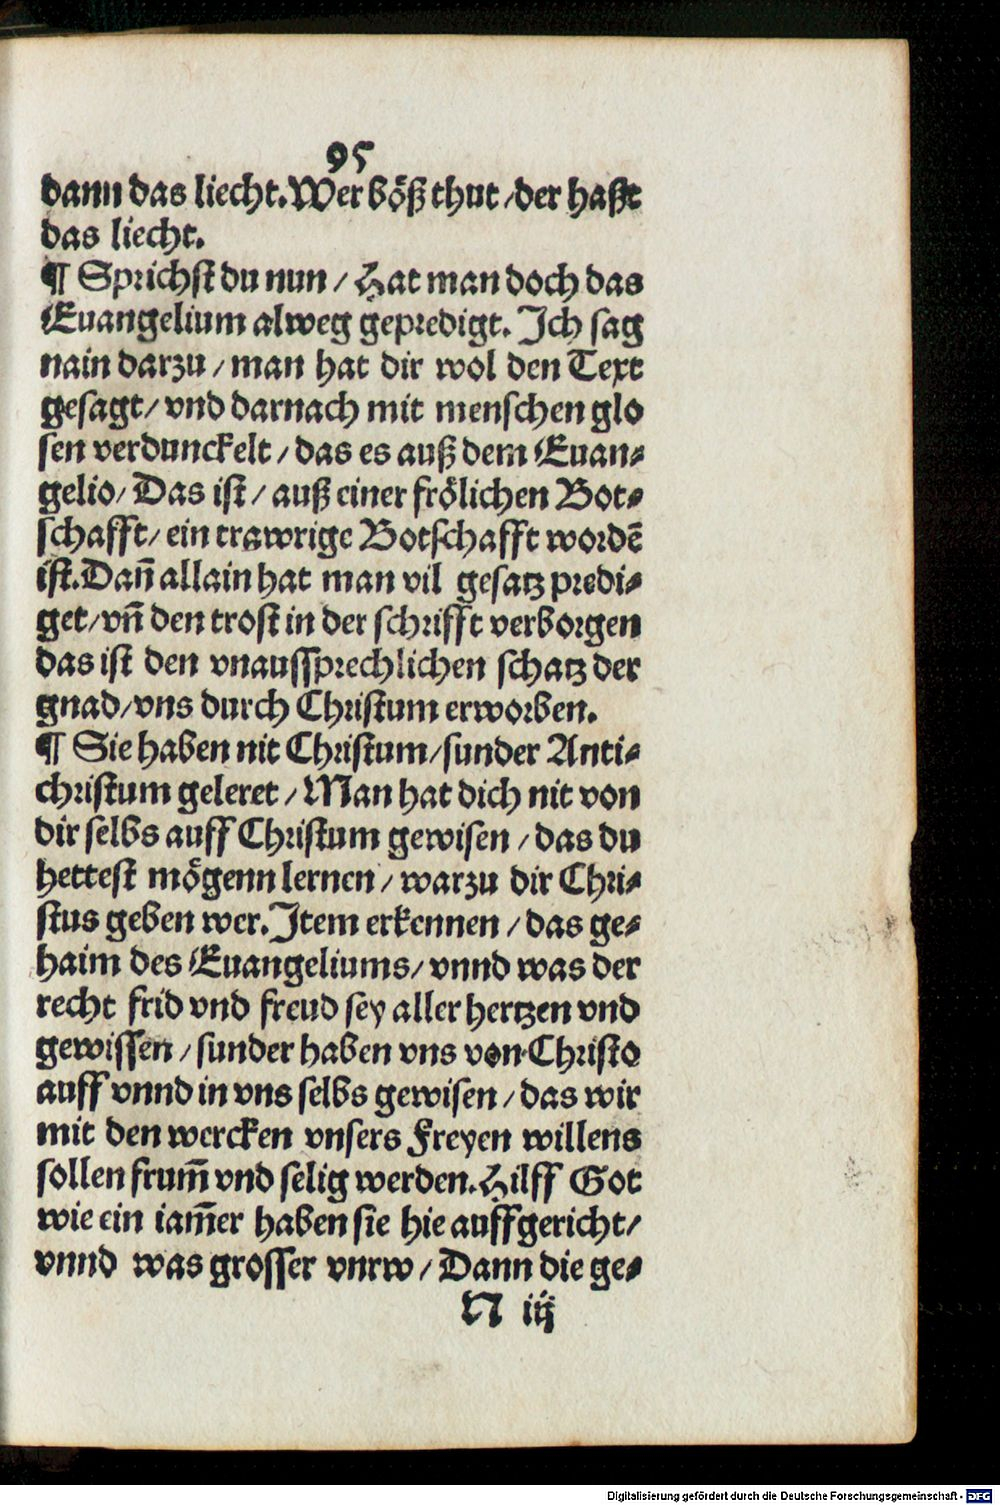 95
dann das liecht. Wer böß thut / der hasst
das liecht.
¶ Sprichst du nun / Hat man doch das
Euangelium alweg gepredigt. Ich sag
nain darzu / man hat dir wol den Text
gesagt / vnd darnach mit menschen glo
sen verdunckelt / das es auß dem Euan⸗
gelio / Das ist / auß einer frölichen Bot⸗
schafft / ein trawrige Botschafft wordē
ist. Dañ allain hat man vil gesatz predi⸗
get / vñ den trost in der schrifft verborgen
das ist den vnaussprechlichen schatz der
gnad / vns durch Christum erworben.
¶ Sie haben nit Christum / sunder Anti⸗
christum geleret / Man hat dich nit von
dir selbs auff Christum gewisen / das du
hettest mögenn lernen / warzu dir Chri⸗
stus geben wer. Item erkennen / das ge⸗
haim des Euangeliums / vnnd was der
recht frid vnd freud sey aller hertzen vnd
gewissen / sunder haben vns von Christo
auff vnnd in vns selbs gewisen / das wir
mit den wercken vnsers Freyen willens
sollen frum̃ vnd selig werden. Hilff Got
wie ein iam̃er haben sie hie auffgericht /
vnnd was grosser vnrw / Dann die ge⸗
N iij
Digitalisierung gefördert durch die Deutsche Forschungsgemeinschaft - DFG